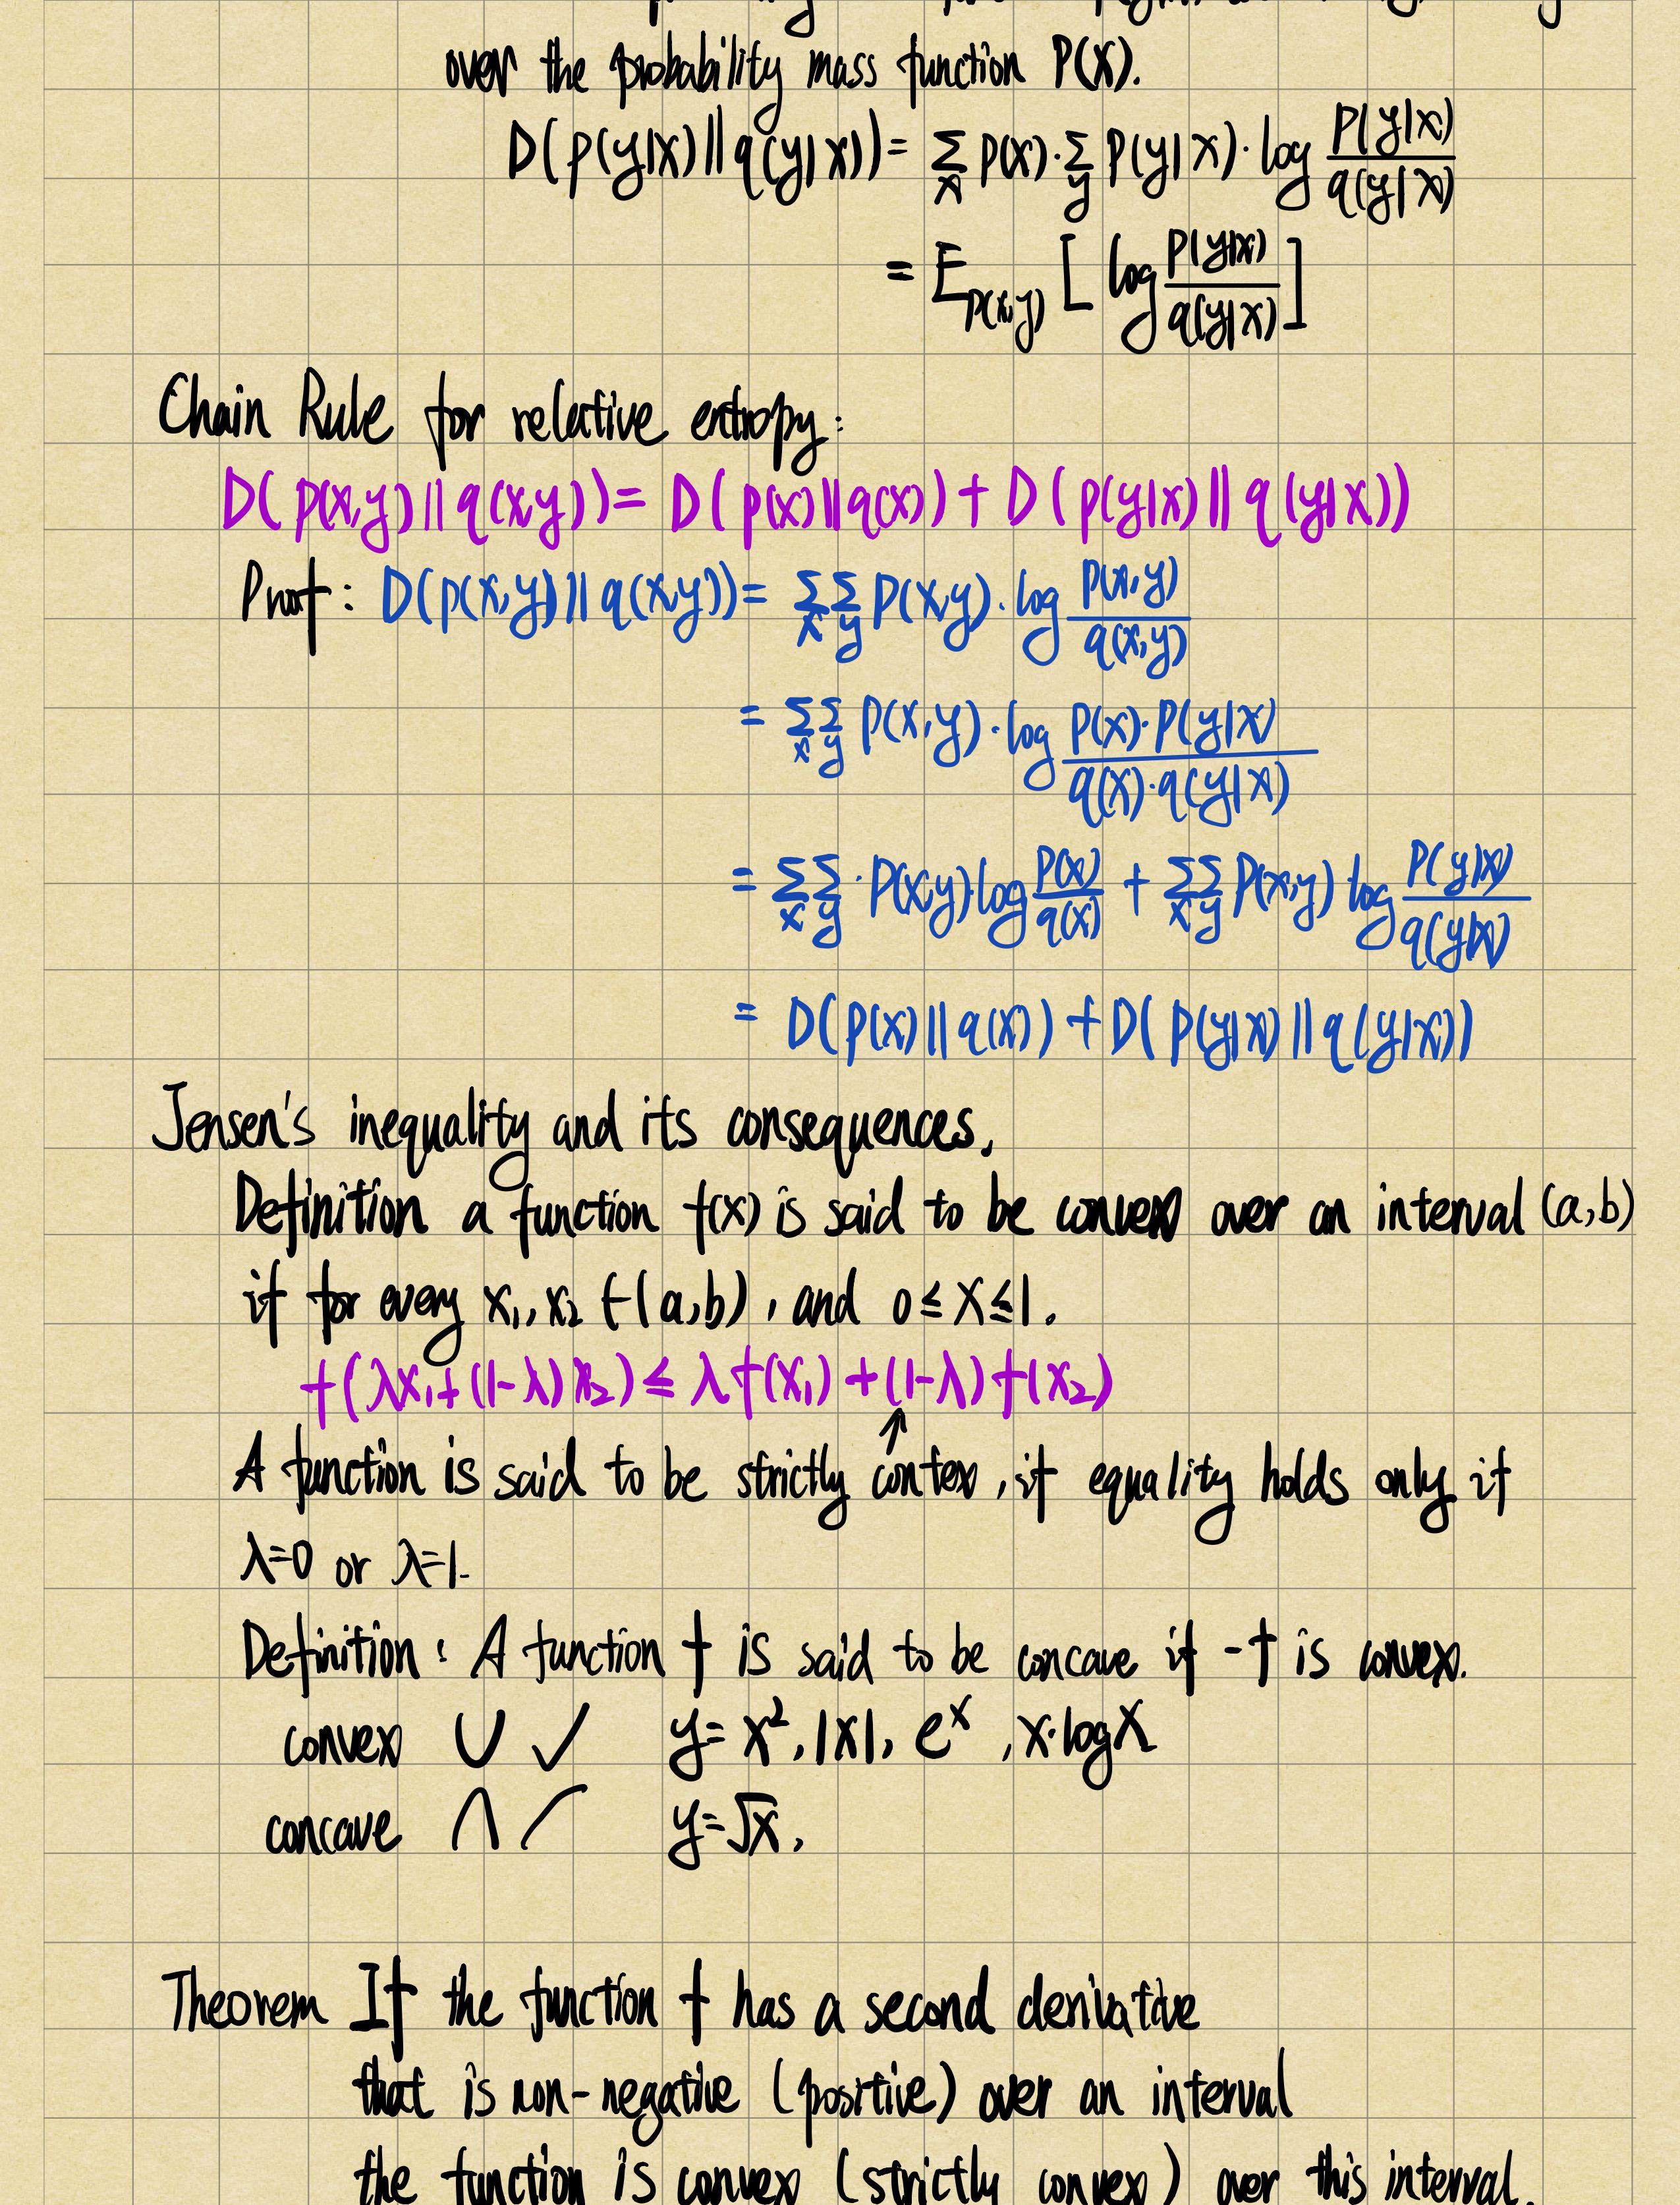 over the probability mass function P(X).
D(p(y|x)||q(y|x)) = Σ_x P(x)·Σ_y P(y|x)·log P(y|x)/q(y|x)
= E_{P(x,y)} [log P(y|x)/q(y|x)]
Chain Rule for relative entropy:
D(p(x,y)||q(x,y)) = D(p(x)||q(x)) + D(p(y|x)||q(y|x))
Proof: D(p(x,y)||q(x,y)) = Σ_x Σ_y P(x,y)·log P(x,y)/q(x,y)
= Σ_x Σ_y P(x,y)·log P(x)·P(y|x)/q(x)·q(y|x)
= Σ_x Σ_y ·P(x,y)·log P(x)/q(x) + Σ_x Σ_y P(x,y) log P(y|x)/q(y|x)
= D(p(x)||q(x)) + D(p(y|x)||q(y|x))
Jensen's inequality and its consequences,
Definition a function f(x) is said to be convex over an interval (a,b)
if for every x₁,x₂ ∈(a,b), and 0≤X≤1.
f(λx₁+(1-λ)x₂) ≤ λf(x₁)+(1-λ)f(x₂)
↑
A function is said to be strictly contex, if equality holds only if
λ=0 or λ=1.
Definition: A function f is said to be concave if -f is convex.
convex ∪ ✓ y=x², |x|, eˣ, x·logx
concave ∩ ╭ y=√x,
Theorem If the function f has a second derivative
that is non-negative (positive) over an interval
the function is convex (strictly convex) over this interval.